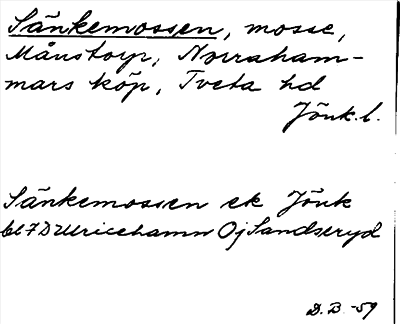 Sänkemossen, mosse,
Månstorp, Norraham-
mars köp, Tveta hd
Jönk.l.
Sänkemossen ek Jönk
bl 7 D Ulricehamn Oj Sandseryd
D.B. -59